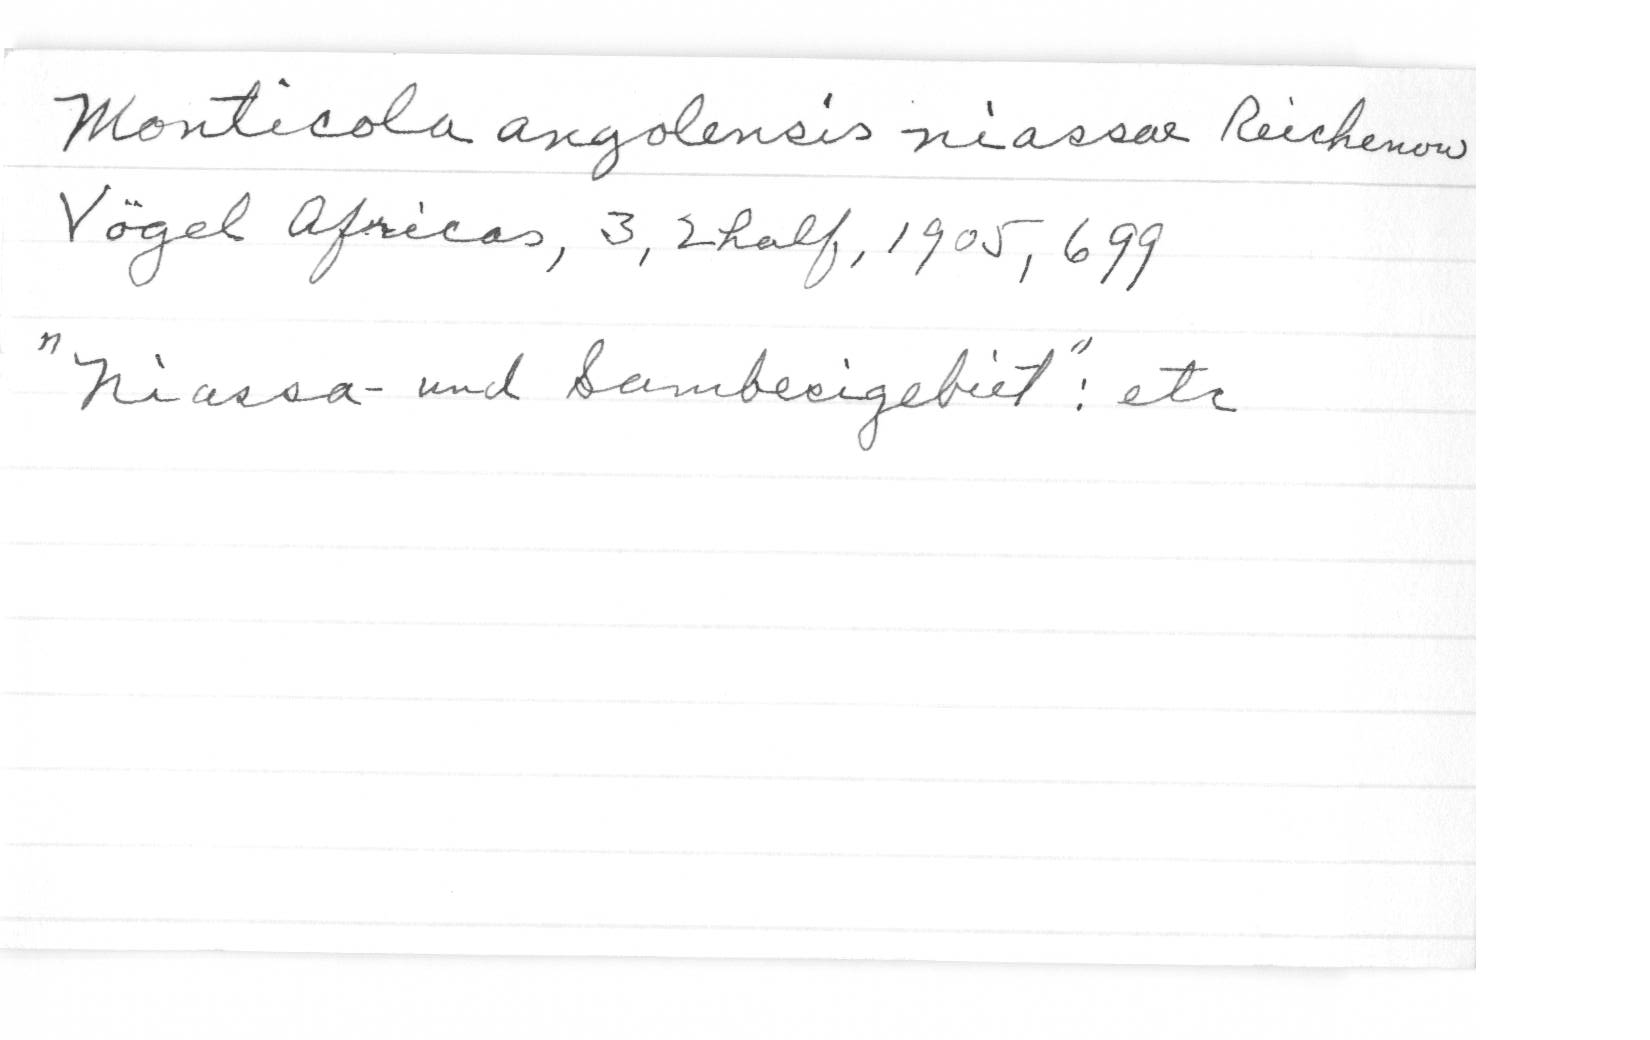 Monticola angolensis niassae Reichenow
Vögel Africas, 3, 2half, 1905, 699
"Niassa- und Sambesigebiet": etc